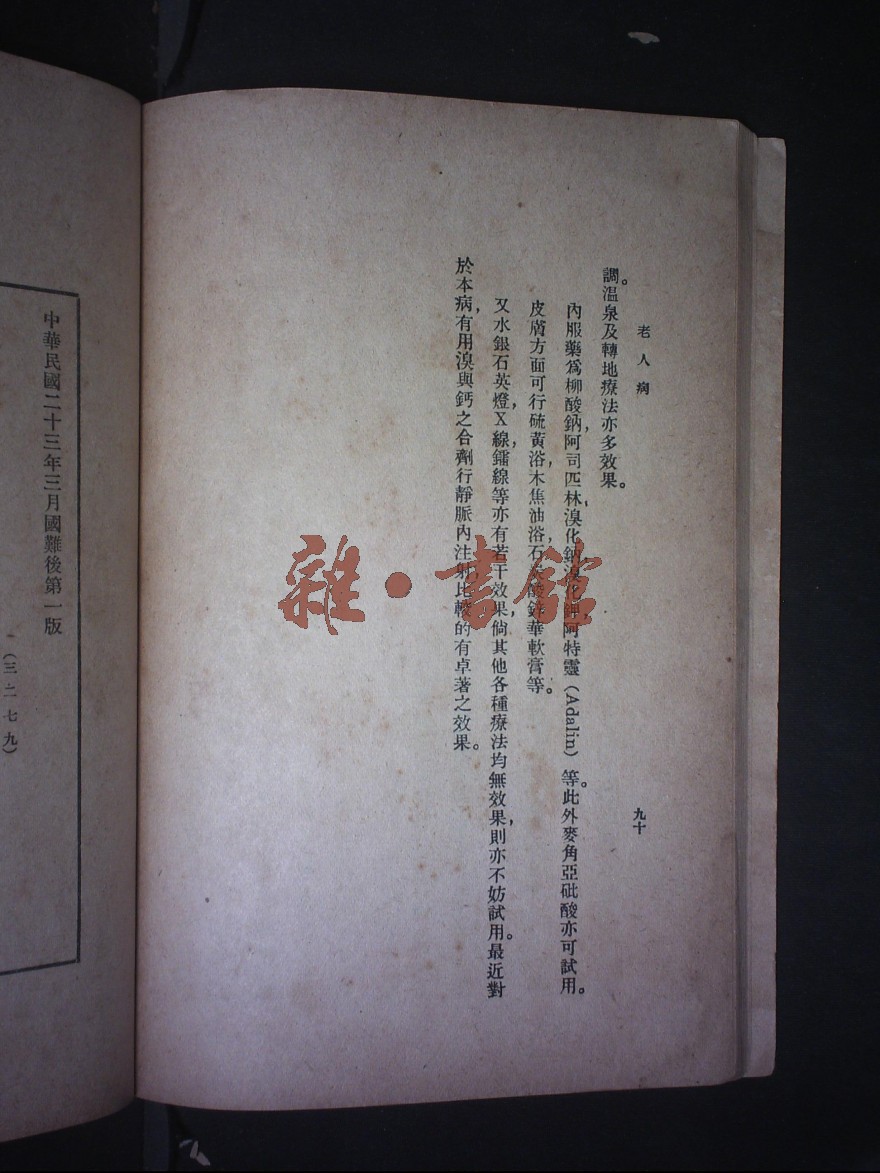 老人病
九十
調。溫泉及轉地療法亦多效果。
內服藥爲柳酸鈉，阿司匹林，溴化鈉，溴化鉀，阿特靈（Adalin）等。此外麥角亞砒酸亦可試用。
皮膚方面可行硫黃浴，木焦油浴，石炭酸鋅華軟膏等。
又水銀石英燈，X線，鐳線等亦有若干效果，倘其他各種療法均無效果，則亦不妨試用。最近對
於本病，有用溴與鈣之合劑行靜脈內注射比較的有卓著之效果。
中華民國二十三年三月國難後第一版
（三二七九）
雜·書館